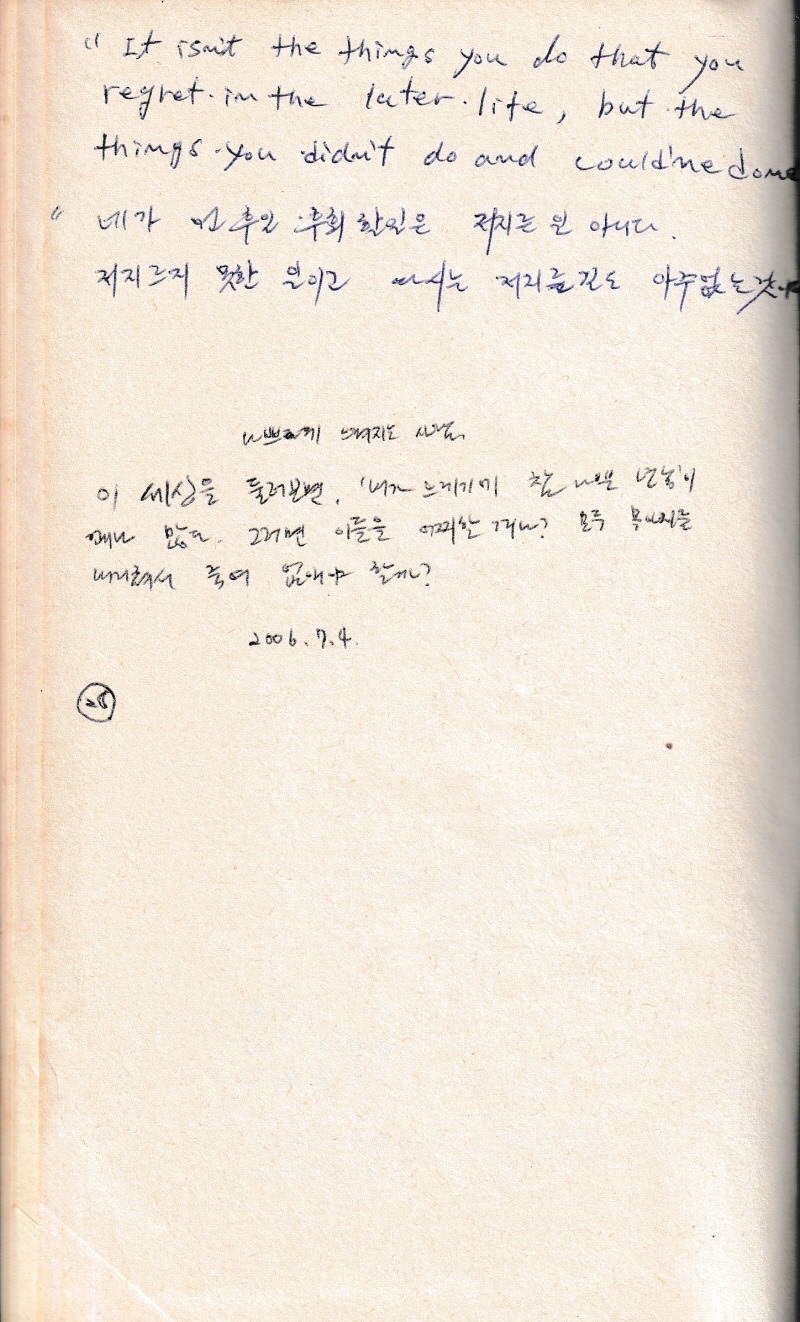 " It isn't the things you do that you
regret in the later life, but the
things you didn't do and could've done
" 네가 먼 후일 후회할 일은 저지른 일 아니다.
저지르지 못한 일이고 다시는 저지를 길도 아주 없는 것
나쁘게 느껴지는 사람.
이 세상을 둘러보면, '내가 느끼기에 참 나쁜 년놈'이
꽤나 많다. 그러면 이들을 어찌할 거나? 모두 목아지를
내리쳐서 죽여 없애야 할까?
2006. 7. 4.
28